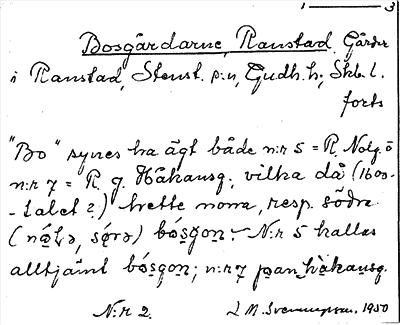 1 — 3
Bosgårdarne, Ranstad. Gårdar
i Ranstad, Stenst. s:n, Gudh. h., Skb. l.
forts
"Bo" synes ha ägt både n:r 5 = R. Nolg. o
n:r 7 = R. g. Håkansg., vilka då (1600-
-talet?) hette norra, resp. södra
bósgon. N:r 5 kallas
alltjämt bósgon; n:r 7 håkansg.
N:r 2. 1950